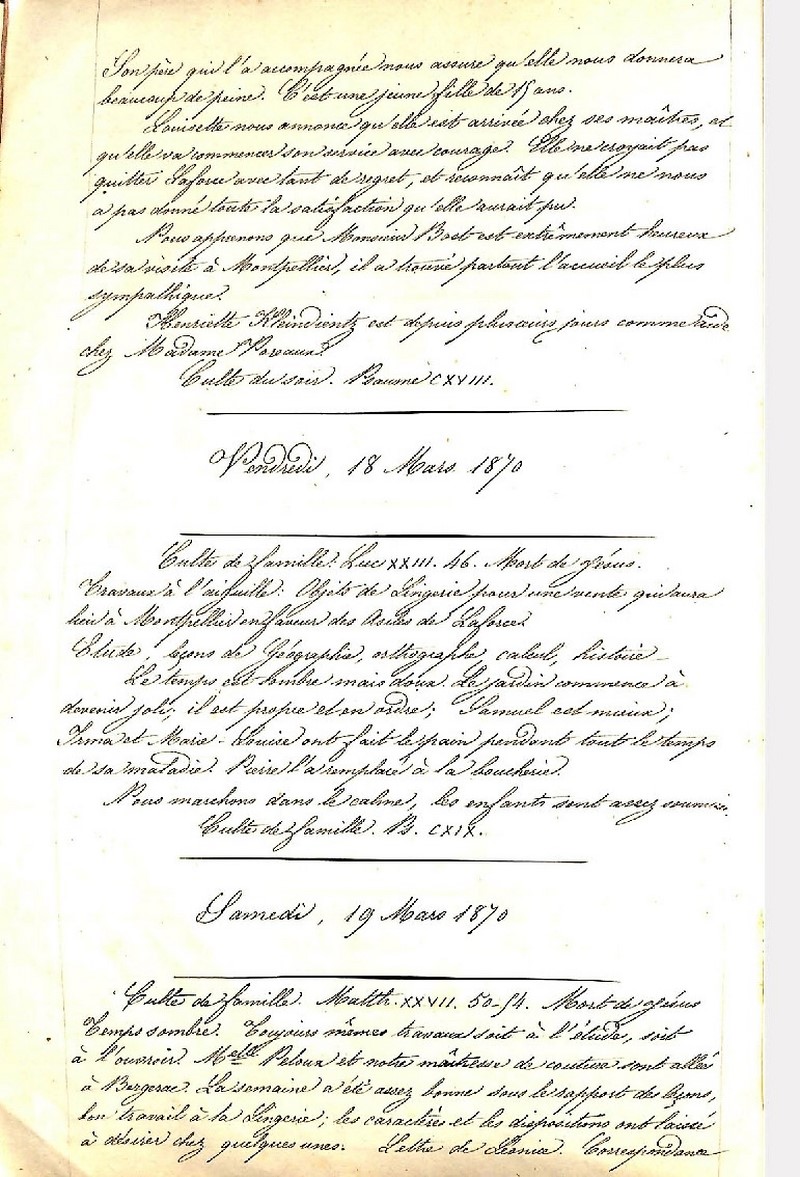 Son père qui l'a accompagnée nous assure qu'elle nous donnera
beaucoup de peine. C'est une jeune fille de 15 ans.
Louisette nous annonce qu'elle est arrivée chez ses maîtres, et
qu'elle va commencer son service avec courage. Elle ne croyait pas
quitter Laforce avec tant de regret, et reconnaît qu'elle ne nous
a pas donné toute la satisfaction qu'elle aurait pu.
Nous apprenons que Monsieur Bost est extrêmement heureux
de sa visite à Montpellier, il a trouvé partout l'accueil le plus
sympathique.
Henriette Kleindientz est depuis plusieurs jours comme aide
chez Madame
Culte du soir. Psaume CXVIII.
Vendredi, 18 Mars 1870
Culte de famille. Luc XXIII. 46. Mort de Jésus.
Travaux à l'aiguille: Objets de Lingerie pour une vente qui aura
lieu à Montpellier en faveur des Asiles de Laforce.
Etude, leçons de Géographie, orthographe, calcul, histoire -
Le temps est sombre mais doux. Le jardin commence à
devenir joli; il est propre et en ordre; Samuel est mieux;
Irma et Marie-Louise ont fait le pain pendant tout le temps
de sa maladie. Pierre l'a remplacé à la boucherie.
Nous marchons dans le calme, les enfants sont assez soumis.
Culte de famille. Ps. CXIX.
Samedi, 19 Mars 1870
Culte de famille. Matth. XXVII. 50-54. Mort de Jésus
Temps sombre. Toujours mêmes travaux soit à l'étude, soit
à l'ouvroir. Melle Peloux et notre maîtresse de couture sont allées
à Bergerac. La semaine a été assez bonne sous le rapport des leçons,
bon travail à la Lingerie; les caractères et les dispositions ont laissé
à désirer chez quelques unes. Lettre de Léonia. Correspondance